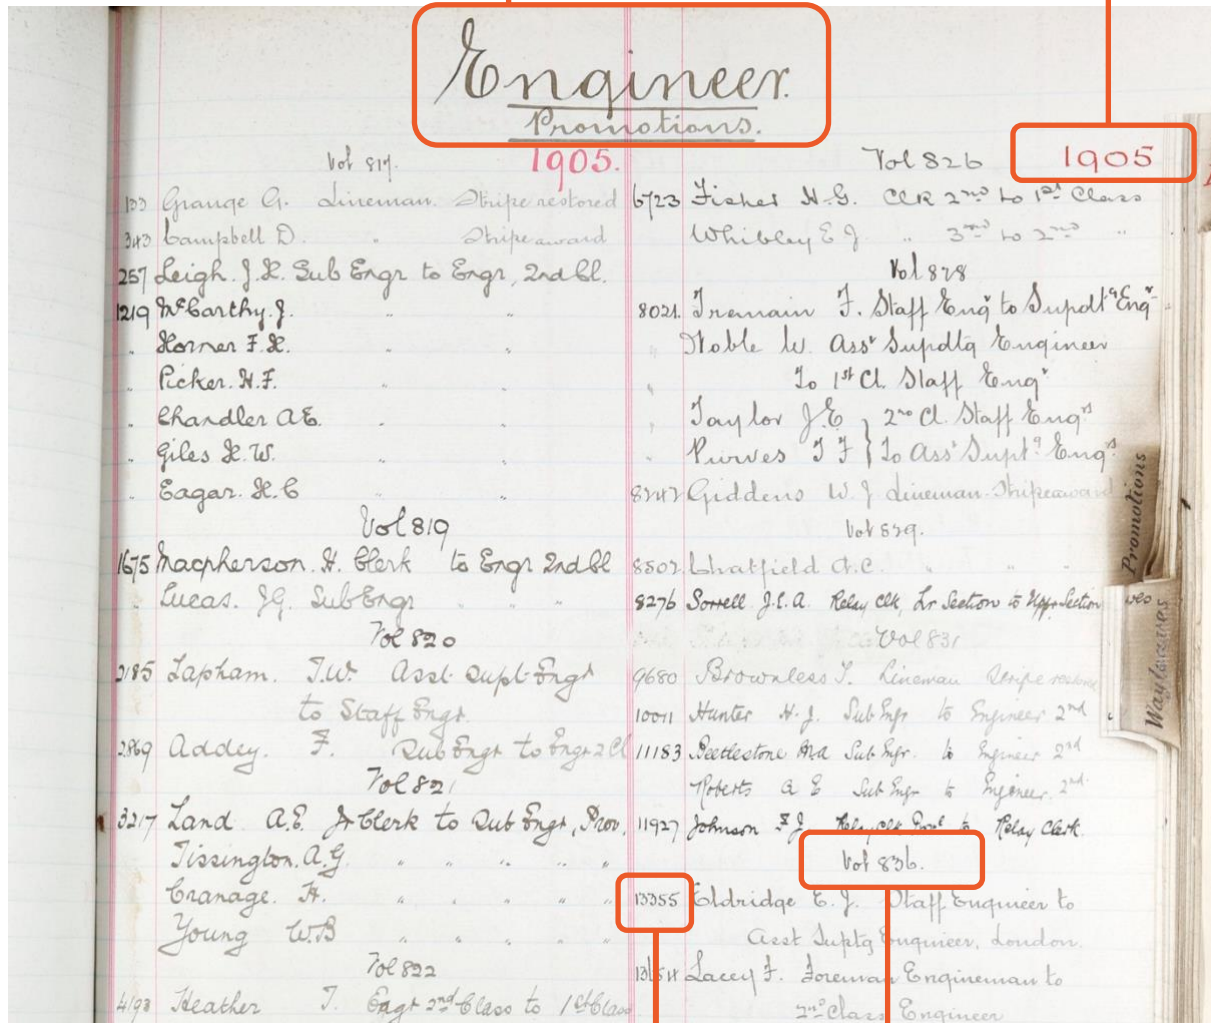 Engineer.
Promotions.
1905.
Vol 817.
133 Grange G. Lineman. Stripe restored
343 Campbell D. " Stripe award
257 Leigh. J.H. Sub Engr to Engr, 2nd Cl.
1219 McCarthy. J. " "
" Horner F.H. " "
" Picker. H.F. " "
" Chandler A.E. " "
" Giles H.W. " "
" Eagar. H.C " "
Vol 819
1675 Macpherson. H. Clerk to Engr 2nd Cl
" Lucas. J.G. Sub Engr " " "
Vol 820
2185 Lapham. T.W. Asst Supt Engr
to Staff Engr.
2869 Addey. F. Sub Engr to Engr 2 Cl
Vol 821
3217 Land A.E. Jr Clerk to Sub Engr, Prov.
Tissington. A.G. " " " " "
Cranage. H. " " " " "
Young W.B " " " " "
Vol 822
4193 Heather T. Engr 2nd Class to 1st Class
Vol 826 1905
6723 Fisher H.G. Clk 2nd to 1st Class
Whibley E J. " 3rd to 2nd "
Vol 828
8021. Tremain F. Staff Engr to Supdtg Engr
" Noble W. Asst Supdtg Engineer
" To 1st Cl. Staff Engr
" Taylor J.E } 2nd Cl. Staff Engrs
" Purves T F } To Asst Suptg Engrs
8242 Giddens W.J Lineman. Stripe award
Vol 829.
8502. Chatfield A.C. " " "
8276 Sorrell J.C.A. Relay Clk, Lr Section to Uppr Section
Vol 831
9680 Brownless T. Lineman Stripe restored
10011 Hunter H.J. Sub Engr to Engineer 2nd
11183 Beetlestone Sub Engr. to Engineer 2nd
Roberts A E Sub Engr to Engineer. 2nd.
11927 Johnson F.J. Relay Clk Provl to Relay Clerk.
Vol 836.
13355 Eldridge E.J. Staff Engineer to
Asst Suptg Engineer, London.
Lacey F. Foreman Engineman to
2nd Class Engineer
Promotions
Wayleaves